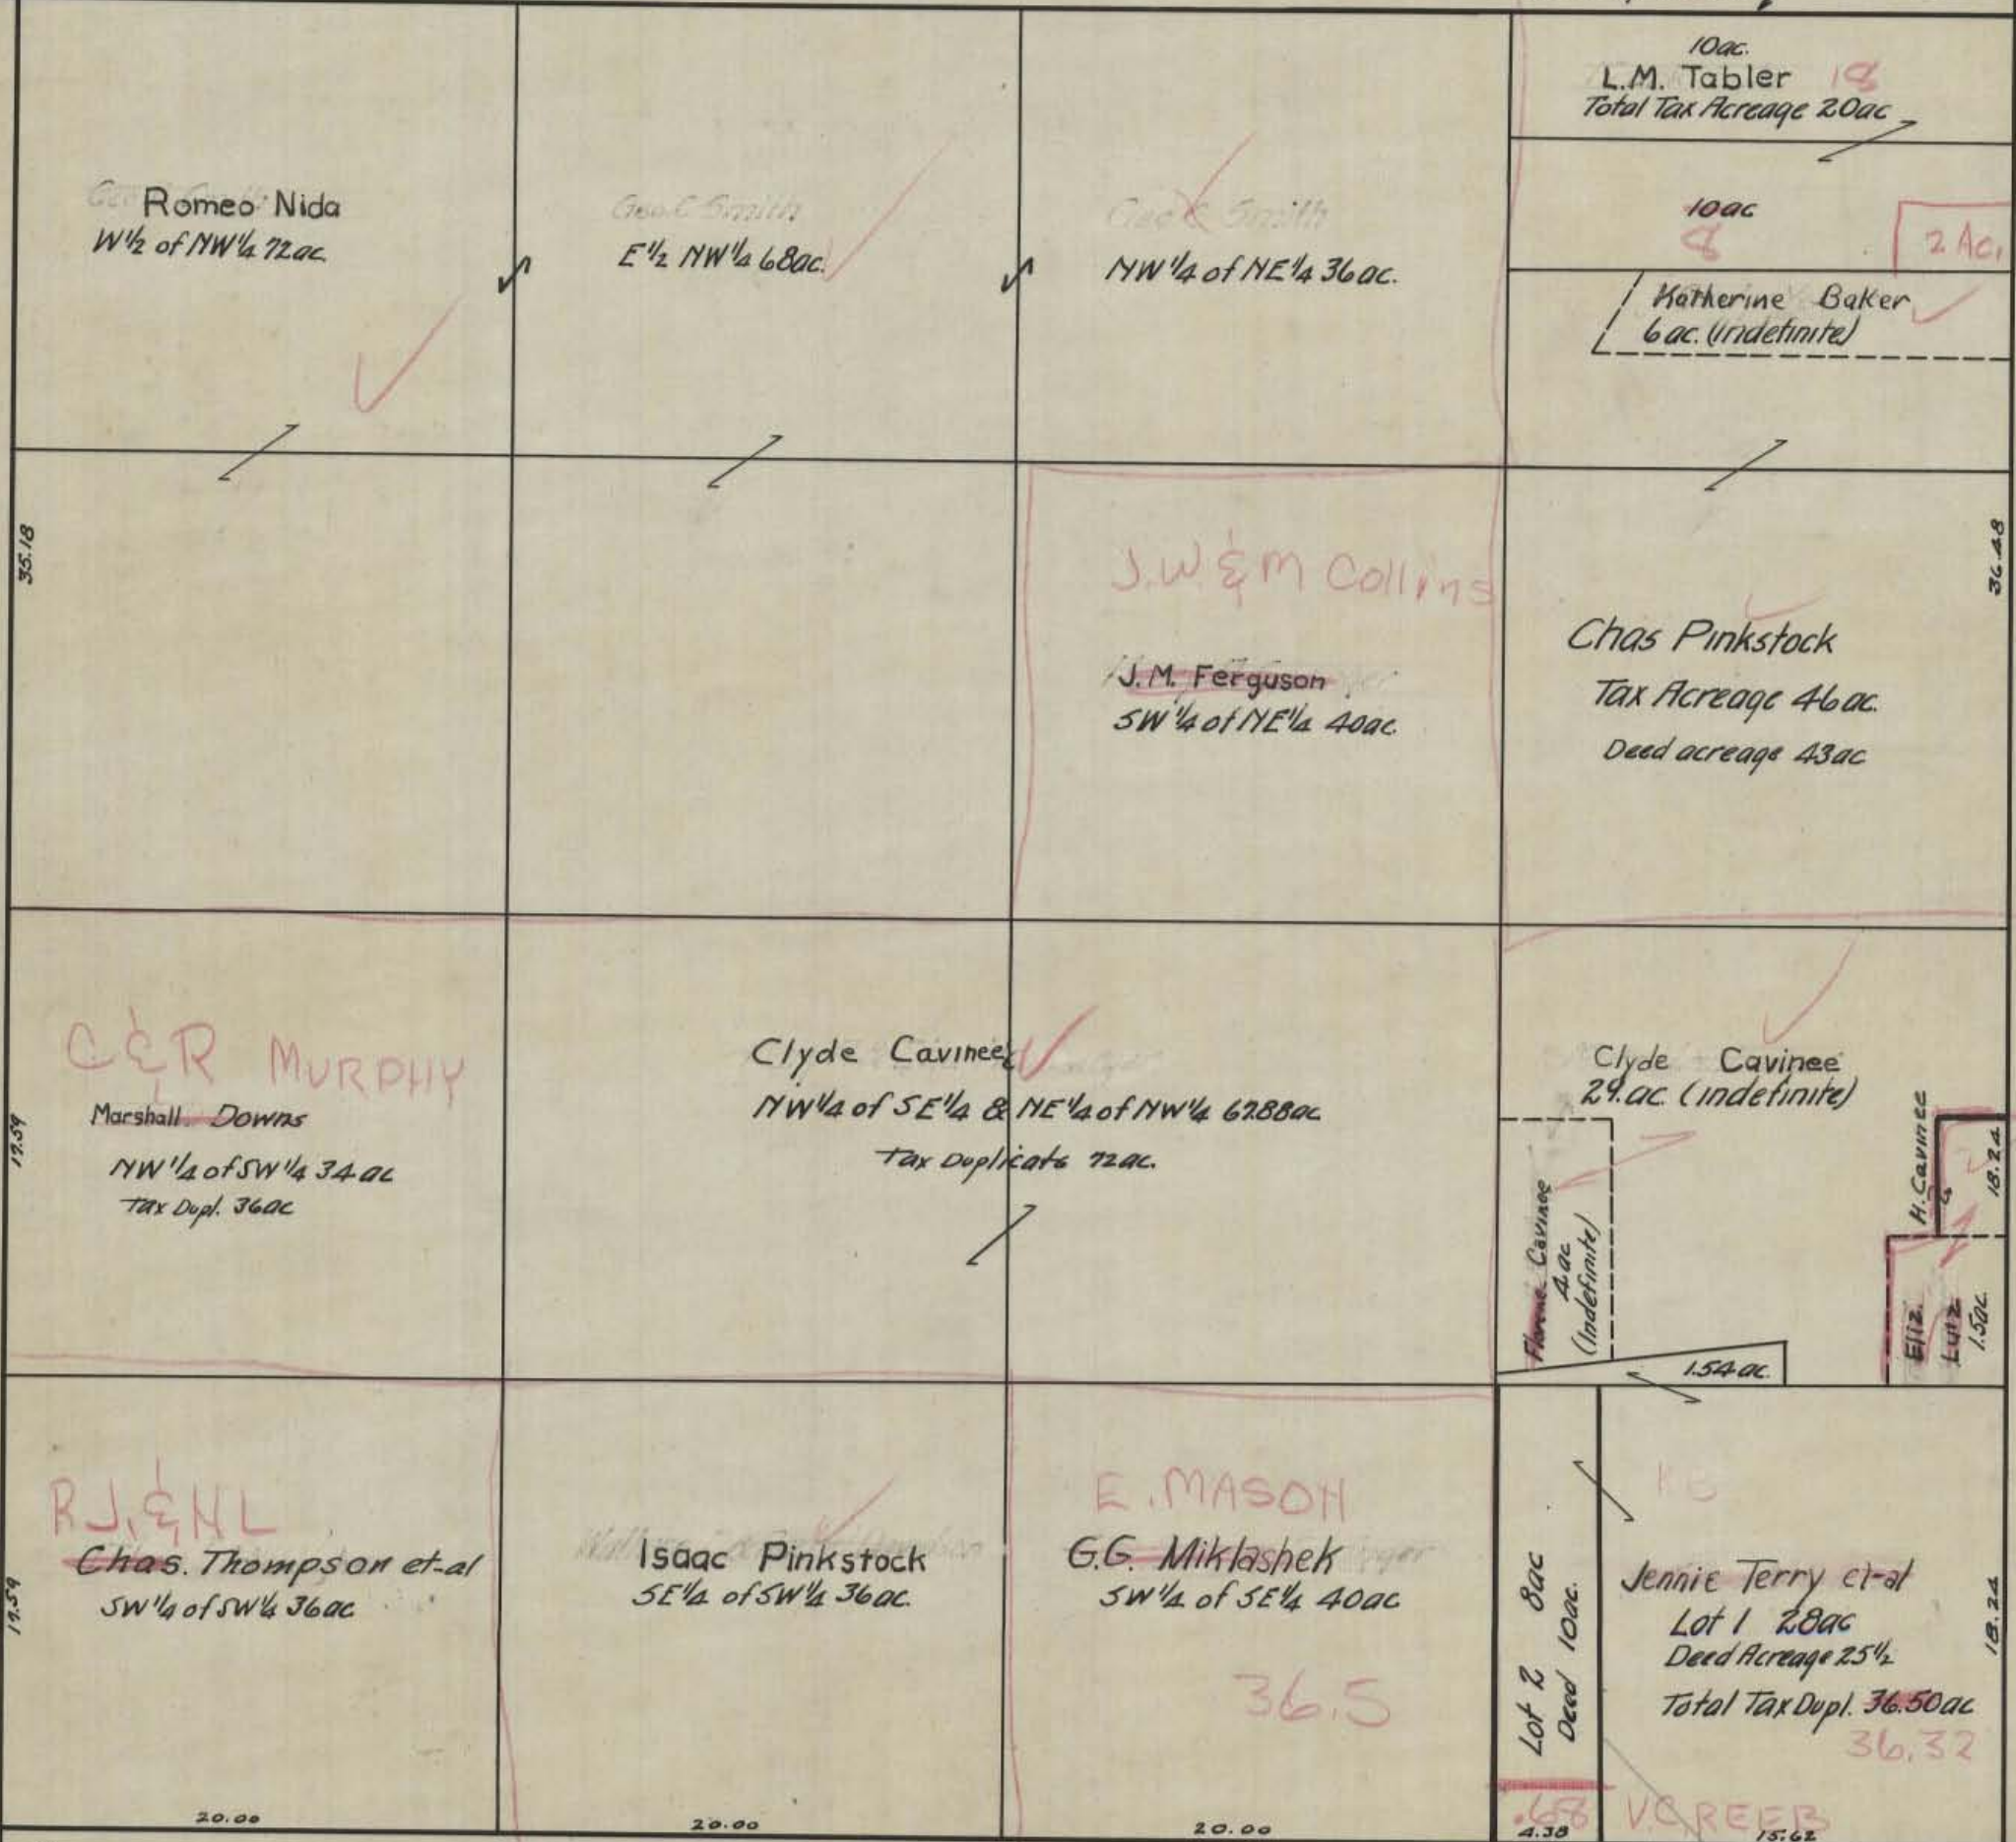 10ac.
L.M. Tabler 18
Total Tax Acreage 20ac
Romeo Nida
W½ of NW¼ 72ac.
Geo. C Smith
E½ NW¼ 68ac.
Geo C Smith
NW¼ of NE¼ 36ac.
10ac
8
2 Ac.
Katherine Baker
6ac. (indefinite)
35.18
J.W. & M Collins
J.M. Ferguson
SW¼ of NE¼ 40ac.
36.48
Chas Pinkstock
Tax Acreage 46ac.
Deed acreage 43ac
C & R MURPHY
Marshall Downs
NW¼ of SW¼ 34ac
Tax Dupl. 36ac
17.59
Clyde Cavinee
NW¼ of SE¼ & NE¼ of NW¼ 67.88ac
Tax Duplicate 72ac.
Clyde Cavinee
29.ac. (indefinite)
Cavinee
4ac
(Indefinite)
H. Cavinee
18.24
Eliz.
Lutz
1.5ac.
1.54ac.
R.J. & N L
Chas. Thompson et-al
SW¼ of SW¼ 36ac
17.59
Isaac Pinkstock
SE¼ of SW¼ 36ac.
E. MASON
G.G. Miklashek
SW¼ of SE¼ 40ac
36.5
Lot 2 8ac
Deed 10ac.
Jennie Terry et-al
Lot 1 28ac
Deed Acreage 25½
Total Tax Dupl. 36.50ac
36.32
18.24
.68
V.C REEB
20.00
20.00
20.00
4.38
15.62